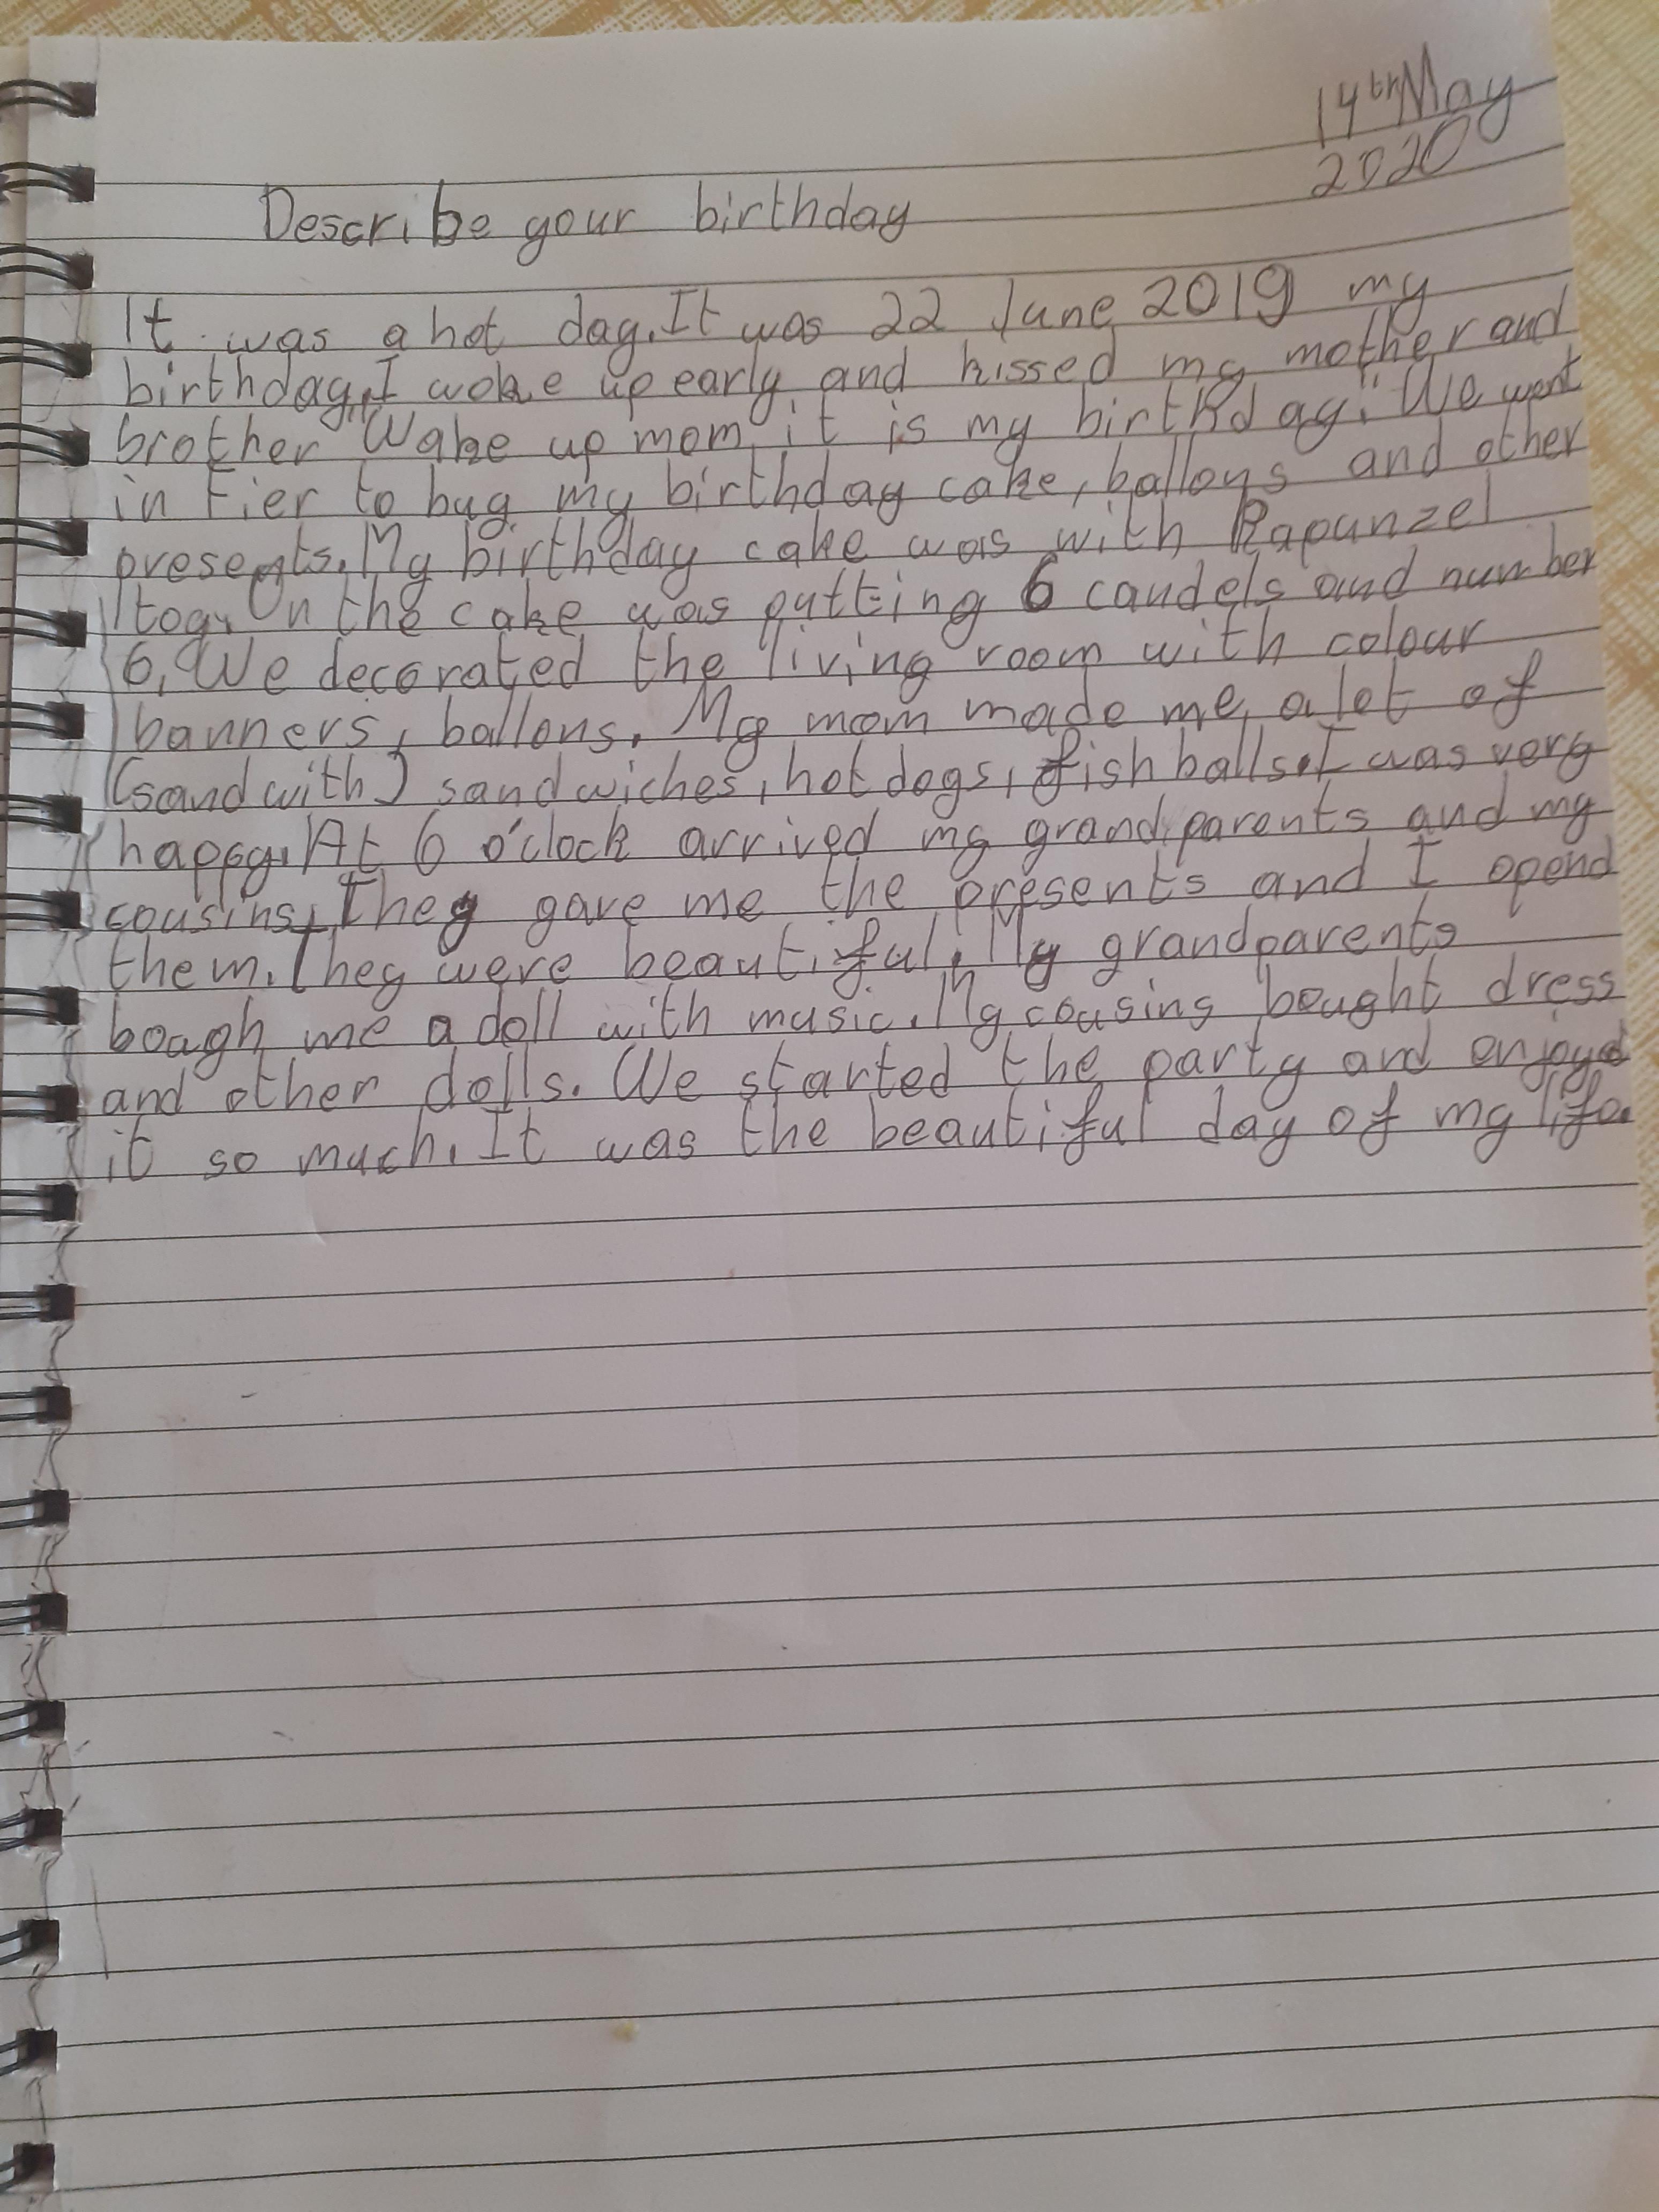 14th May
2020
Describe your birthday
It was a hot day. It was 22 June 2019 my
birthday. I woke up early and kissed my mother and
brother "Wake up mom it is my birthday." We went
in Fier to buy my birthday cake, ballons and other
presents. My birthday cake was with Rapunzel
toy. On the cake was putting 6 caudels and number
6. We decorated the living room with colour
banners, ballons. My mom made me a lot of
(sandwith) sandwiches, hot dogs, fish balls. I was very
happy. At 6 o'clock arrived my grandparents and my
cousins. They gave me the presents and I opend
them. They were beautiful. My grandparents
bough me a doll with music. My cousing bought dress
and other dolls. We started the party and enjoyd
it so much. It was the beautiful day of my life.